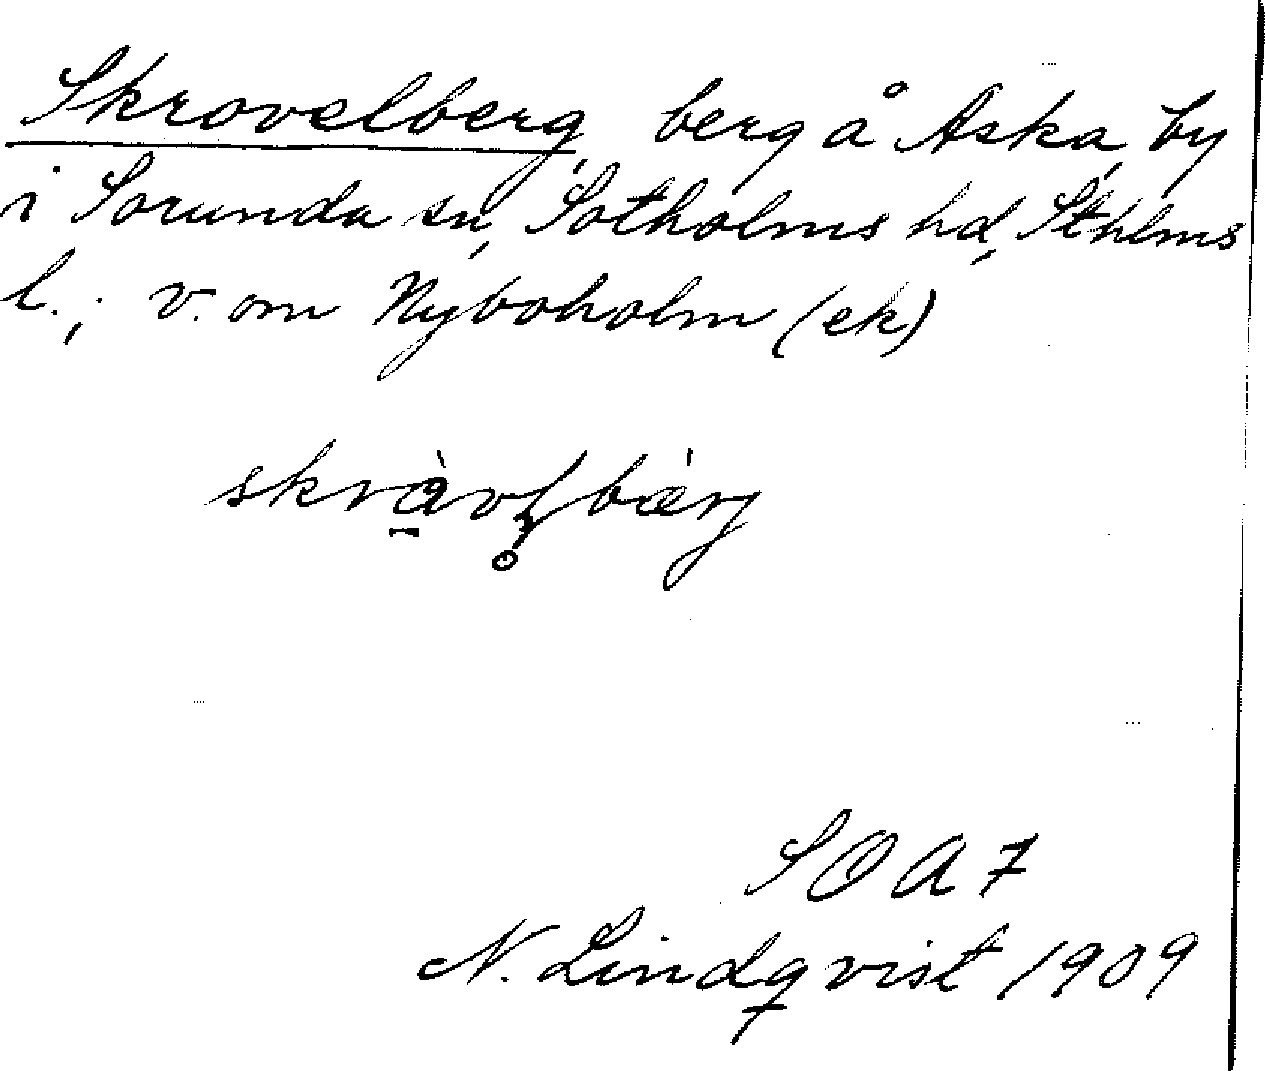 Skrovelberg, berg å Aska, by
i Sorunda sn, Sotholms hd, Sthlms
l.; v. om Nyboholm (ek)
SOA 7
N. Lindqvist 1909